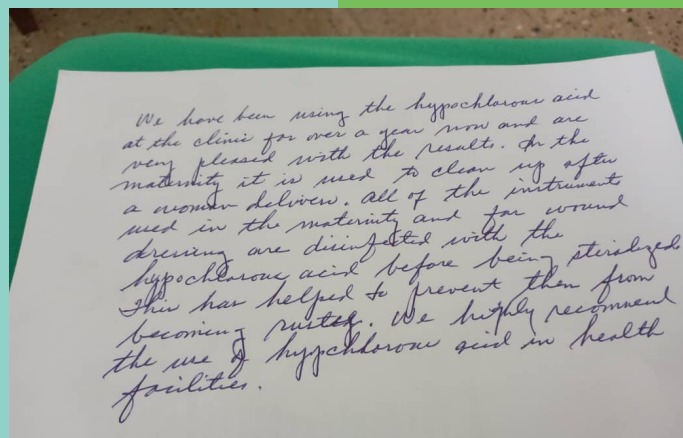 We have been using the hypochlorous acid
at the clinic for over a year now and are
very pleased with the results. In the
maternity it is used to clean up after
a woman delivers. All of the instruments
used in the maternity and for wound
dressing are disinfected with the
hypochlorous acid before being steralized.
This has helped to prevent them from
becoming rusted. We highly recommend
the use of hypchlorous acid in health
facilities.